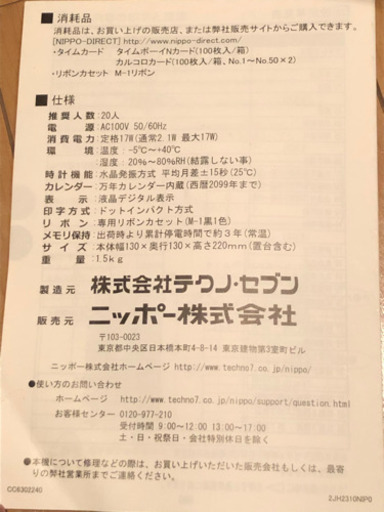 ■ 消耗品
消耗品は、お買い上げの販売店、または弊社販売サイトからご購入できます。
[NIPPO-DIRECT] http://www.nippo-direct.com/
・タイムカード タイムボーイNカード(100枚入/箱)
カルコロカード(100枚入/箱、No.1〜No.50×2)
・リボンカセット M-1リボン
■ 仕様
推奨人数:20人
電源:AC100V 50/60Hz
消費電力:定格17W(通常2.1W 最大17W)
環境:温度:-5℃〜+40℃
湿度:20%〜80%RH(結露しない事)
時計機能:水晶発振方式 平均月差±15秒(25℃)
カレンダー:万年カレンダー内蔵(西暦2099年まで)
表示:液晶デジタル表示
印字方式:ドットインパクト方式
リボン:専用リボンカセット(M-1黒1色)
メモリ保持:出荷時より累計停電時間で約3年(常温)
サイズ:本体幅130×奥行130×高さ220mm(置台含む)
重量:1.5kg
製造元 株式会社テクノ・セブン
販売元 ニッポー株式会社
〒103-0023
東京都中央区日本橋本町4-8-14 東京建物第3室町ビル
ニッポー株式会社ホームページ http://www.techno7.co.jp/nippo/
●使い方のお問い合わせ
ホームページ http://www.techno7.co.jp/nippo/support/question.html
お客様センター 0120-977-210
受付時間 9:00〜12:00 13:00〜17:00
土・日・祝祭日・会社特別休日を除く
●本機について修理などの際は、お買い上げいただいた販売会社もしくは、最寄
りの弊社営業所までご連絡ください。
CC6302240
2JH2310NIP0